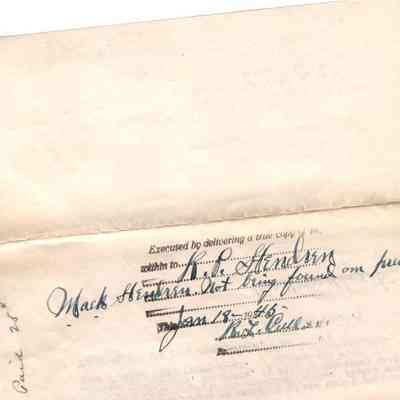 Executed by delivering a true copy
within to R. L. Hendren
Mack Hendren Not being found on
Jan 18 - 1946
R. L.
Paid 25